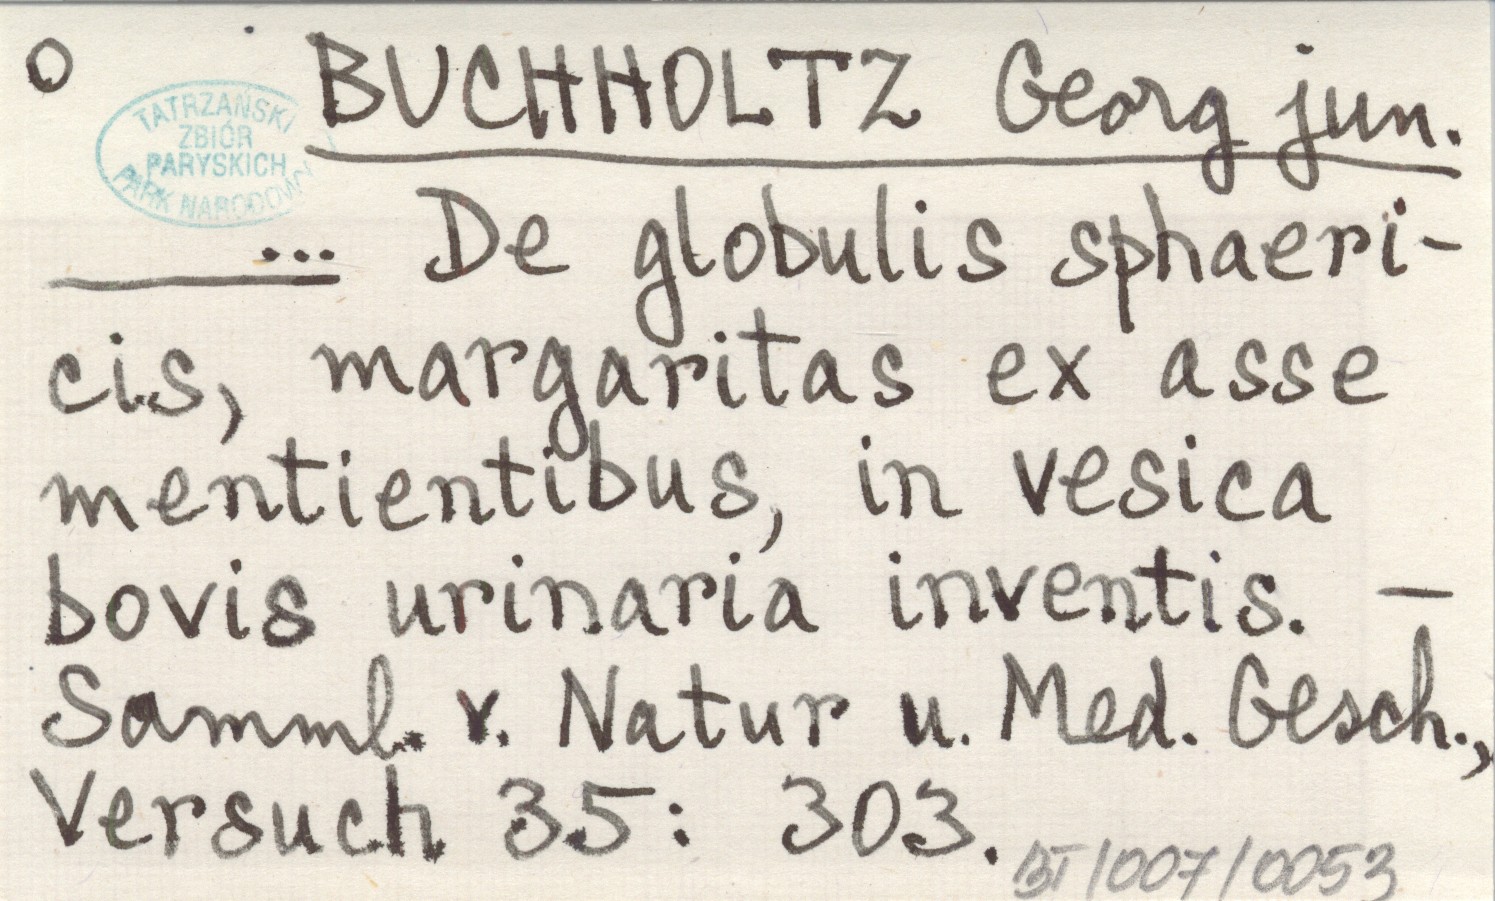 O BUCHHOLTZ Georg jun.
TATRZAŃSKI
ZBIÓR
PARYSKICH
PARK NARODOWY
... De globulis sphaeri-
cis, margaritas ex asse
mentientibus, in vesica
bovis urinaria inventis. —
Samml. v. Natur u. Med. Gesch.,
Versuch 35: 303.
BT/007/0053